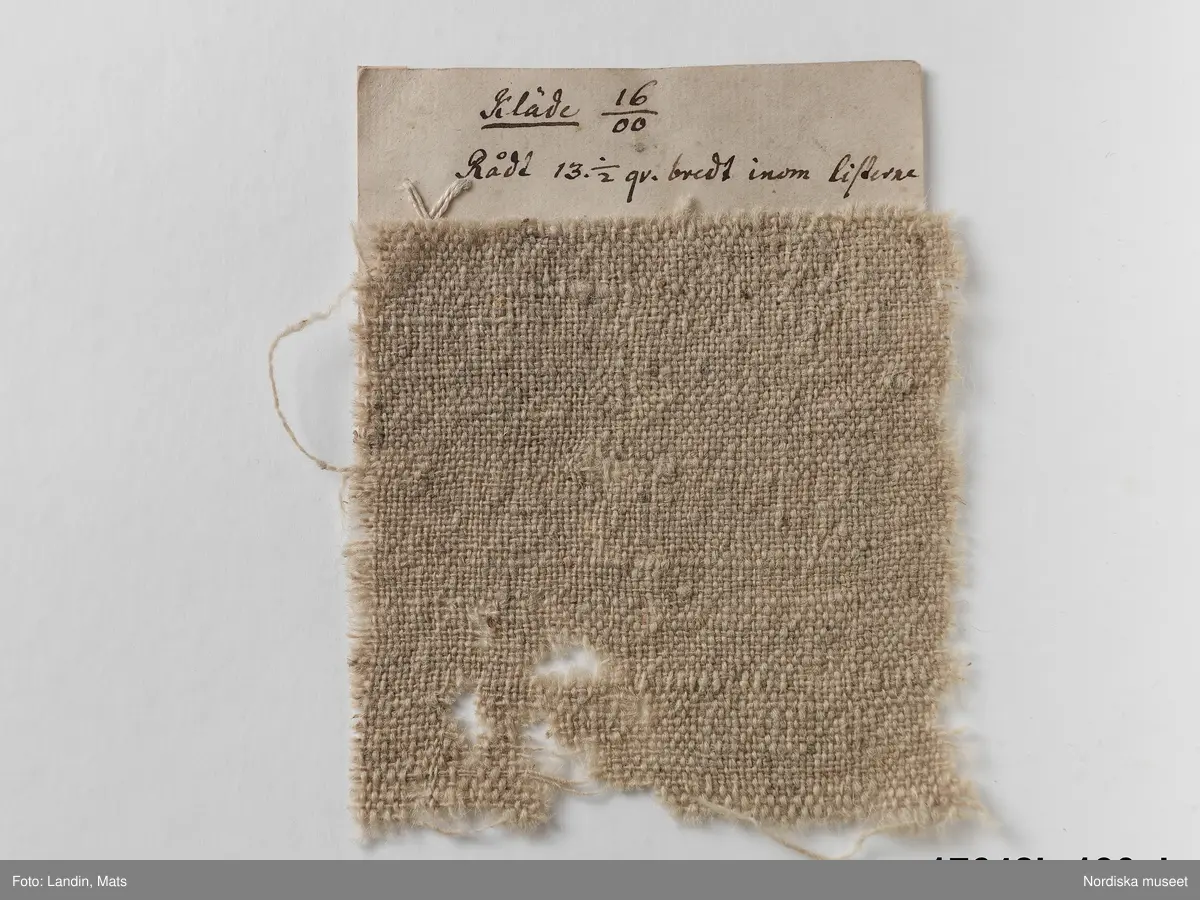 Kläde 16/00
Rådt 13.½ qr. bredt inom listerne
Foto: Landin, Mats
Nordiska museet